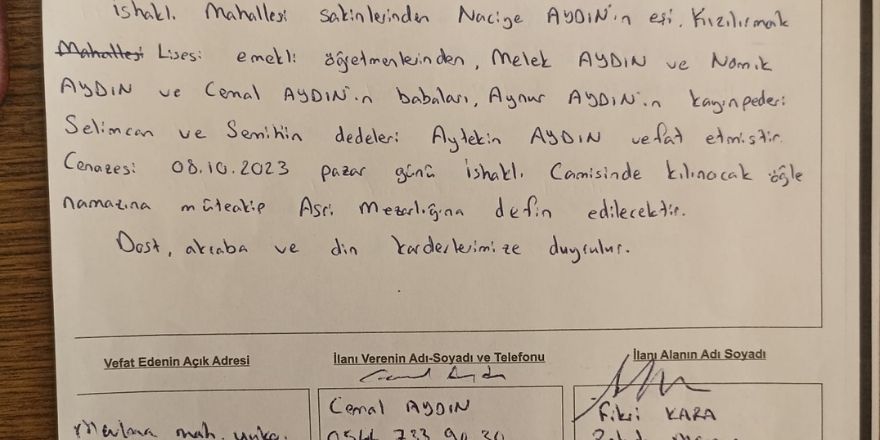 ishaklı Mahallesi sakinlerinden Naciye AYDIN'ın eşi, Kızılırmak
Mahallesi Lisesi emekli öğretmenlerinden, Melek AYDIN ve Namık
AYDIN ve Cemal AYDIN'ın babaları, Aynur AYDIN'ın kayınpederi
Selimcan ve Semih'in dedeleri Aytekin AYDIN vefat etmiştir.
Cenazesi 08.10.2023 pazar günü ishaklı Camisinde kılınacak öğle
namazına müteakip Asri Mezarlığına defin edilecektir.
Dost, akraba ve din kardeşlerimize duyrulur.
Vefat Edenin Açık Adresi
İlanı Verenin Adı-Soyadı ve Telefonu
İlanı Alanın Adı Soyadı
Cemal AYDIN
Fikri KARA
Mevlana mah.
0544 733 90 30